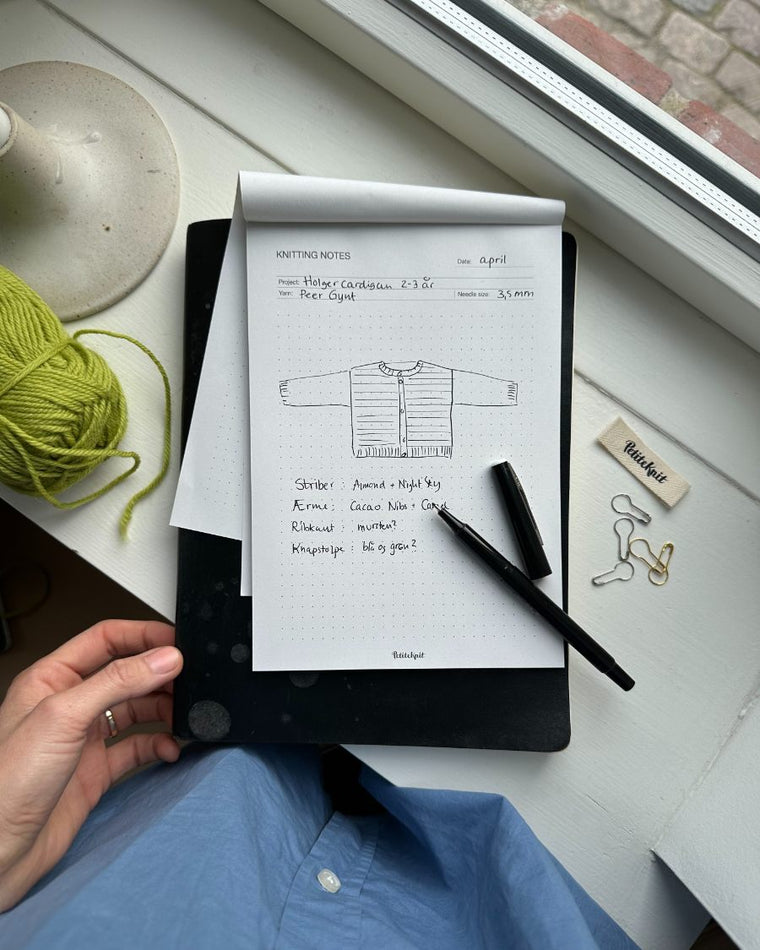 KNITTING NOTES
Date: april
Project: Holger Cardigan 2-3 år
Yarn: Peer Gynt
Needle size: 3,5 mm
Striber : Almond + Night Sky
Ærme : Cacao Nibs +
Ribkant : murrten?
Knapstolpe : blå og grøn?
PetiteKnit
PetiteKnit